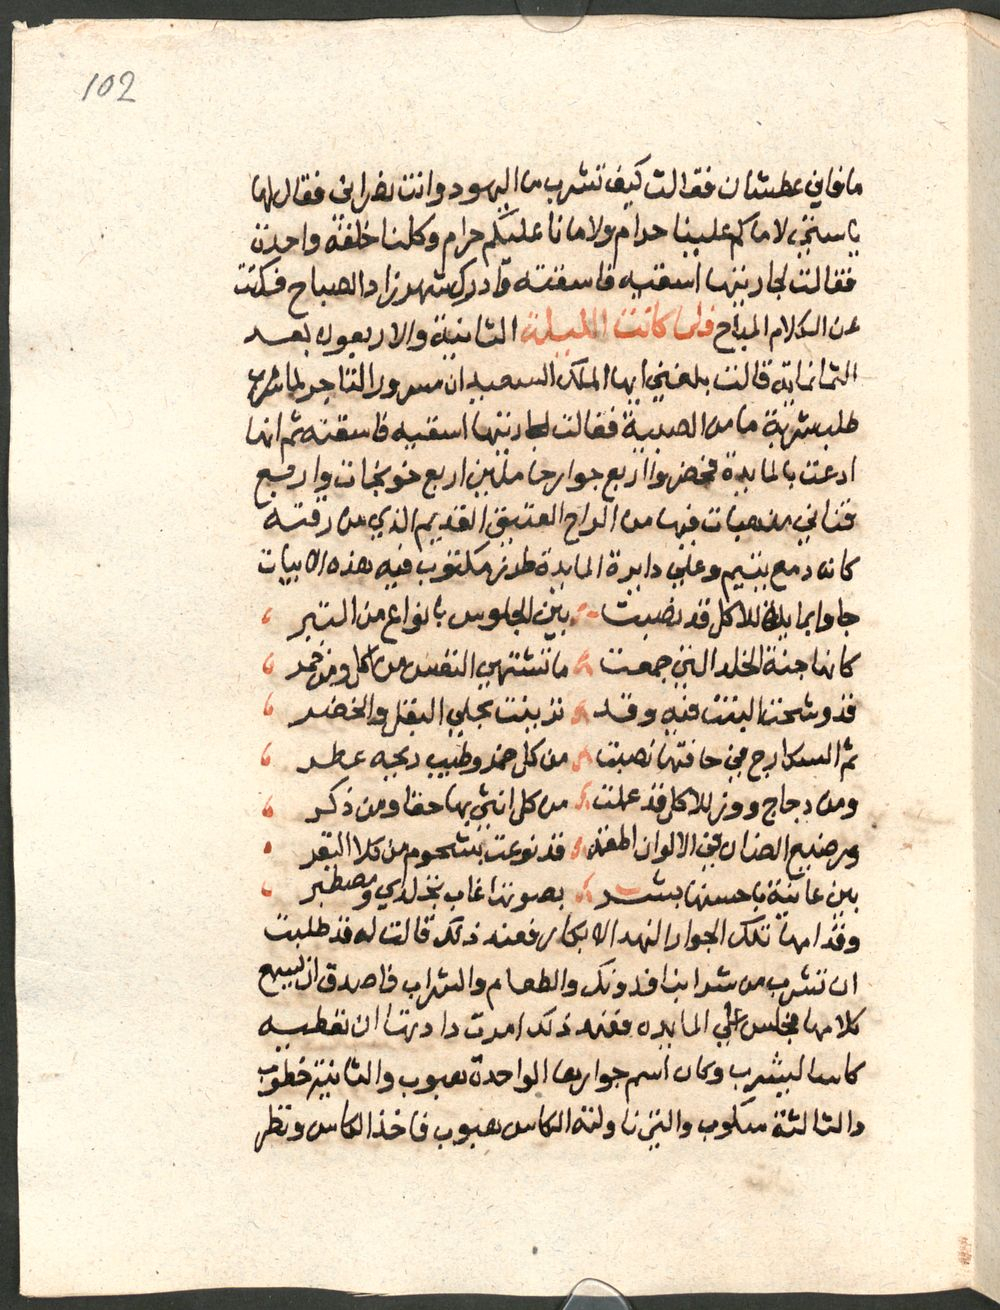 102
ما فاني عطشان فقالت كيف تشرب ما اليهود وانت نصراني فقال لها
يا ستي لا ماكم علينا حرام ولا مانا عليكم حرام وكلنا خلقة واحدة
فقالت لجاريتها اسقيه فاسقته وادرك شهرزاد الصباح فسكتت
عن الكلام المباح فلما كانت الليلة الثانية والاربعون بعد
الثمانماية قالت بلغني ايها الملك السعيد ان مسرور التاجر لما
طلب شربة ما من الصبية فقالت لجاريتها اسقيه فاسقته ثم انها
ادعت بالمايدة فحضروا اربع جوار حاملين اربع خونجات واربع
قناني مذهبات فيها من الراح العتيق القديم الذي من رقته
كانه دمع يتيم وعلي دايرة المايدة طرز مكتوب فيه هذه الابيات
جاوا بمايدة للاكل قد نصبت بين الجلوس بانواع من التبر
كانها جنة الخلد التي جمعت ما تشتهي النفس من اكل ومن خمر
قد وشحت فيه وقد تزينت بحلي البقل والخضر
ثم السكارج في حافتها نصبت من كل خمر وطيب ريحه عطر
ومن دجاج ووز للاكل قد عملت من كل انثي بها حقا ومن ذكر
ومن ضبع الضان في الالوان قد نوعت بشحوم من كلا البقر
بين غانية يا حسنها بشر بصوتها غاب
وقدامها تلك الجوار النهد الابكار فعند ذلك قالت له قد طلبت
ان تشرب من شرابنا فدونك والطعام والشراب فاصدق ان يسمع
كلامها فجلس علي المايده فعند ذلك امرت دادتها ان تعطيه
كاسا ليشرب وكان اسم جوارها الواحدة هبوب والثانية خطوب
والثالثة سكوب والتي ناولته الكاس هبوب فاخذ الكاس ونظر